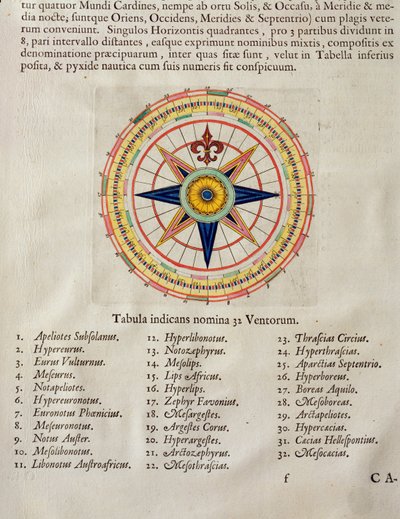 tur quatuor Mundi Cardines, nempe ab ortu Solis, & Occasu, à Meridie & me-
dia nocte; suntque Oriens, Occidens, Meridies & Septentrio) cum plagis vete-
rum conveniunt. Singulos Horizontis quadrantes, pro 3 partibus dividunt in
8, pari intervallo distantes, easque exprimunt nominibus mixtis, compositis ex
denominatione præcipuarum, inter quas sitæ sunt, velut in Tabella inferius
posita, & pyxide nautica cum suis numeris fit conspicuum.
Tabula indicans nomina 32 Ventorum.
1. Apeliotes Subsolanus.
2. Hypereurus.
3. Eurus Vulturnus.
4. Meseurus.
5. Notapeliotes.
6. Hypereuronotus.
7. Euronotus Phœnicius.
8. Meseuronotus.
9. Notus Auster.
10. Mesolibonotus.
11. Libonotus Austroafricus.
12. Hyperlibonotus.
13. Notozephyrus.
14. Mesolips.
15. Lips Africus.
16. Hyperlips.
17. Zephyr Favonius.
18. Mesargestes.
19. Argestes Corus.
20. Hyperargestes.
21. Arctozephyrus.
22. Mesothrascias.
23. Thrascias Circius.
24. Hyperthrascias.
25. Aparctias Septentrio.
26. Hyperboreus.
27. Boreas Aquilo.
28. Mesoboreas.
29. Arctapeliotes.
30. Hypercæcias.
31. Cacias Hellespontius.
32. Mesocacias.
f C A-